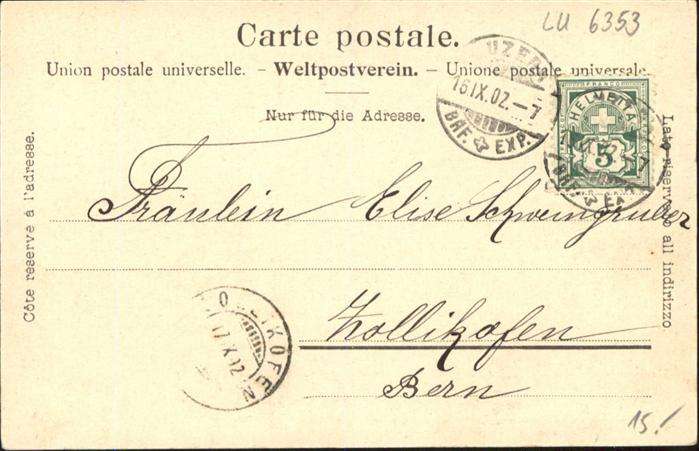 LU 6353
Carte postale.
Union postale universelle. – Weltpostverein. – Unione postale universale.
Nur für die Adresse.
LUZERN
16.IX.02.–7
BRF. EXP.
HELVETIA
5
FRANCO
Côte reservé à l'adresse.
Lato riservato all indirizzo
Fräulein Elise Schweingruber
Zollikofen
Bern
ZOLLIKOFEN
17.IX.02
15.!